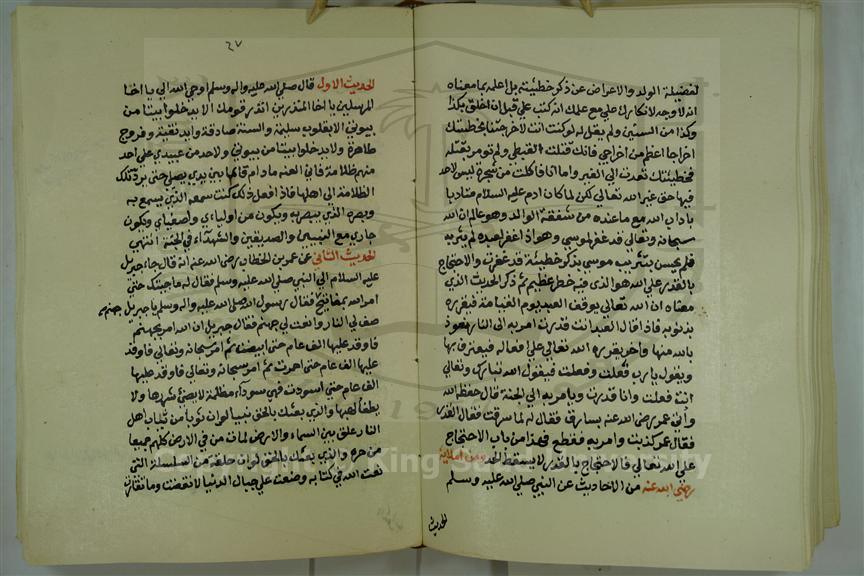 لفضيلة الولد والاعراض عن ذكر خطيئته بل اعلمه بما معناه
انه لا وجه لانكارك علي مع علمك انه كتب علي قبل ان اخلق بكذا
وكذا من السنين ولم يقل له لو كنت انت لاخرجتنا بخطيئتك
اخراجا اعظم من اخراجي فانك قتلت القبطي ولم تومر بقتله
فخطيئتك تعدت الي الغير واما انا فاكلت من شجرة ليس لاحد
فيها حق غير الله تعالي لكن لما كان ادم عليه السلام متادبا
باداب الله مع ما عنده من شفقة الوالد وهو عالم ان الله
سبحانه وتعالي قد غفر لموسي وهو اذا غفر لعبده لم يثربه
فلم يحسن تثريب موسي بذكر خطيئة قد غفرت والاحتجاج
بالقدر علي الله هو الذي فيه خطر عظيم ثم ذكر الحديث الذي
معناه ان الله تعالي يوقف العبد يوم القيامة فيقرره
بذنوبه فاذا قال العبد انت قدرت امر به الي النار نعوذ
بالله منها واخر يقرره الله تعالي علي فعاله فيعترف بها
ويقول يا رب فعلت وفعلت فيقول الله تبارك وتعالي
انت فعلت وانا قدرت ويامر به الي الجنة قال حفظه الله
واتي عمر رضي الله عنه بسارق فقال له لم سرقت فقال القدر
فقال عمر كذبت وامر به فقطع فهذا من باب الاحتجاج
علي الله تعالي فالاحتجاج بالقدر لا يسقط الحد ومن املائه
رضي الله عنه من الاحاديث عن النبي صلي الله عليه وسلم
الحديث
٤٧
الحديث الاول قال صلي الله عليه واله وسلم اوحي الله الي يا اخا
المرسلين يا اخا المنذرين انذر قومك الا يدخلوا بيتا من
بيوتي الا بقلوب سليمة والسنة صادقة وايد نقية وفروج
طاهرة ولا يدخلوا بيتا من بيوتي ولاحد من عبيدي علي احد
منهم ظلامة فاني العنه ما دام قائما بين يدي يصلي حتي يرد تلك
الظلامة الي اهلها فاذا فعل ذلك كنت سمعه الذي يسمع به
وبصره الذي يبصر به ويكون من اوليائي واصفيائي ويكون
جاري مع النبيين والصديقين والشهداء في الجنة انتهي
الحديث الثاني عن عمر بن الخطاب رضي الله عنه انه قال جاء جبريل
عليه السلام الي النبي صلي الله عليه وسلم فقال له ما جيتك حتي
امر الله بمفاتيح فقال رسول الله صلي الله عليه واله وسلم يا جبريل جهنم
صف لي النار وانعت لي جهنم فقال جبريل ان الله امر بجهنم
فاوقد عليها الف عام حتي ابيضت ثم امر سبحانه وتعالي فاوقد
عليها الف عام حتي احمرت ثم امر سبحانه وتعالي فاوقد عليها
الف عام حتي اسودت فهي سوداء مظلمة لا يضئ شررها ولا
يطفأ لهبها والذي بعثك بالحق نبيا لو ان ثوبا من ثياب اهل
النار علق بين السماء والارض لمات من في الارض كلهم جميعا
من حره والذي بعثك بالحق لو ان حلقة من السلسلة التي
نعت الله في كتابه وضعت علي جبال الدنيا لانقضت وما تقارت
Copyright © King Saud University